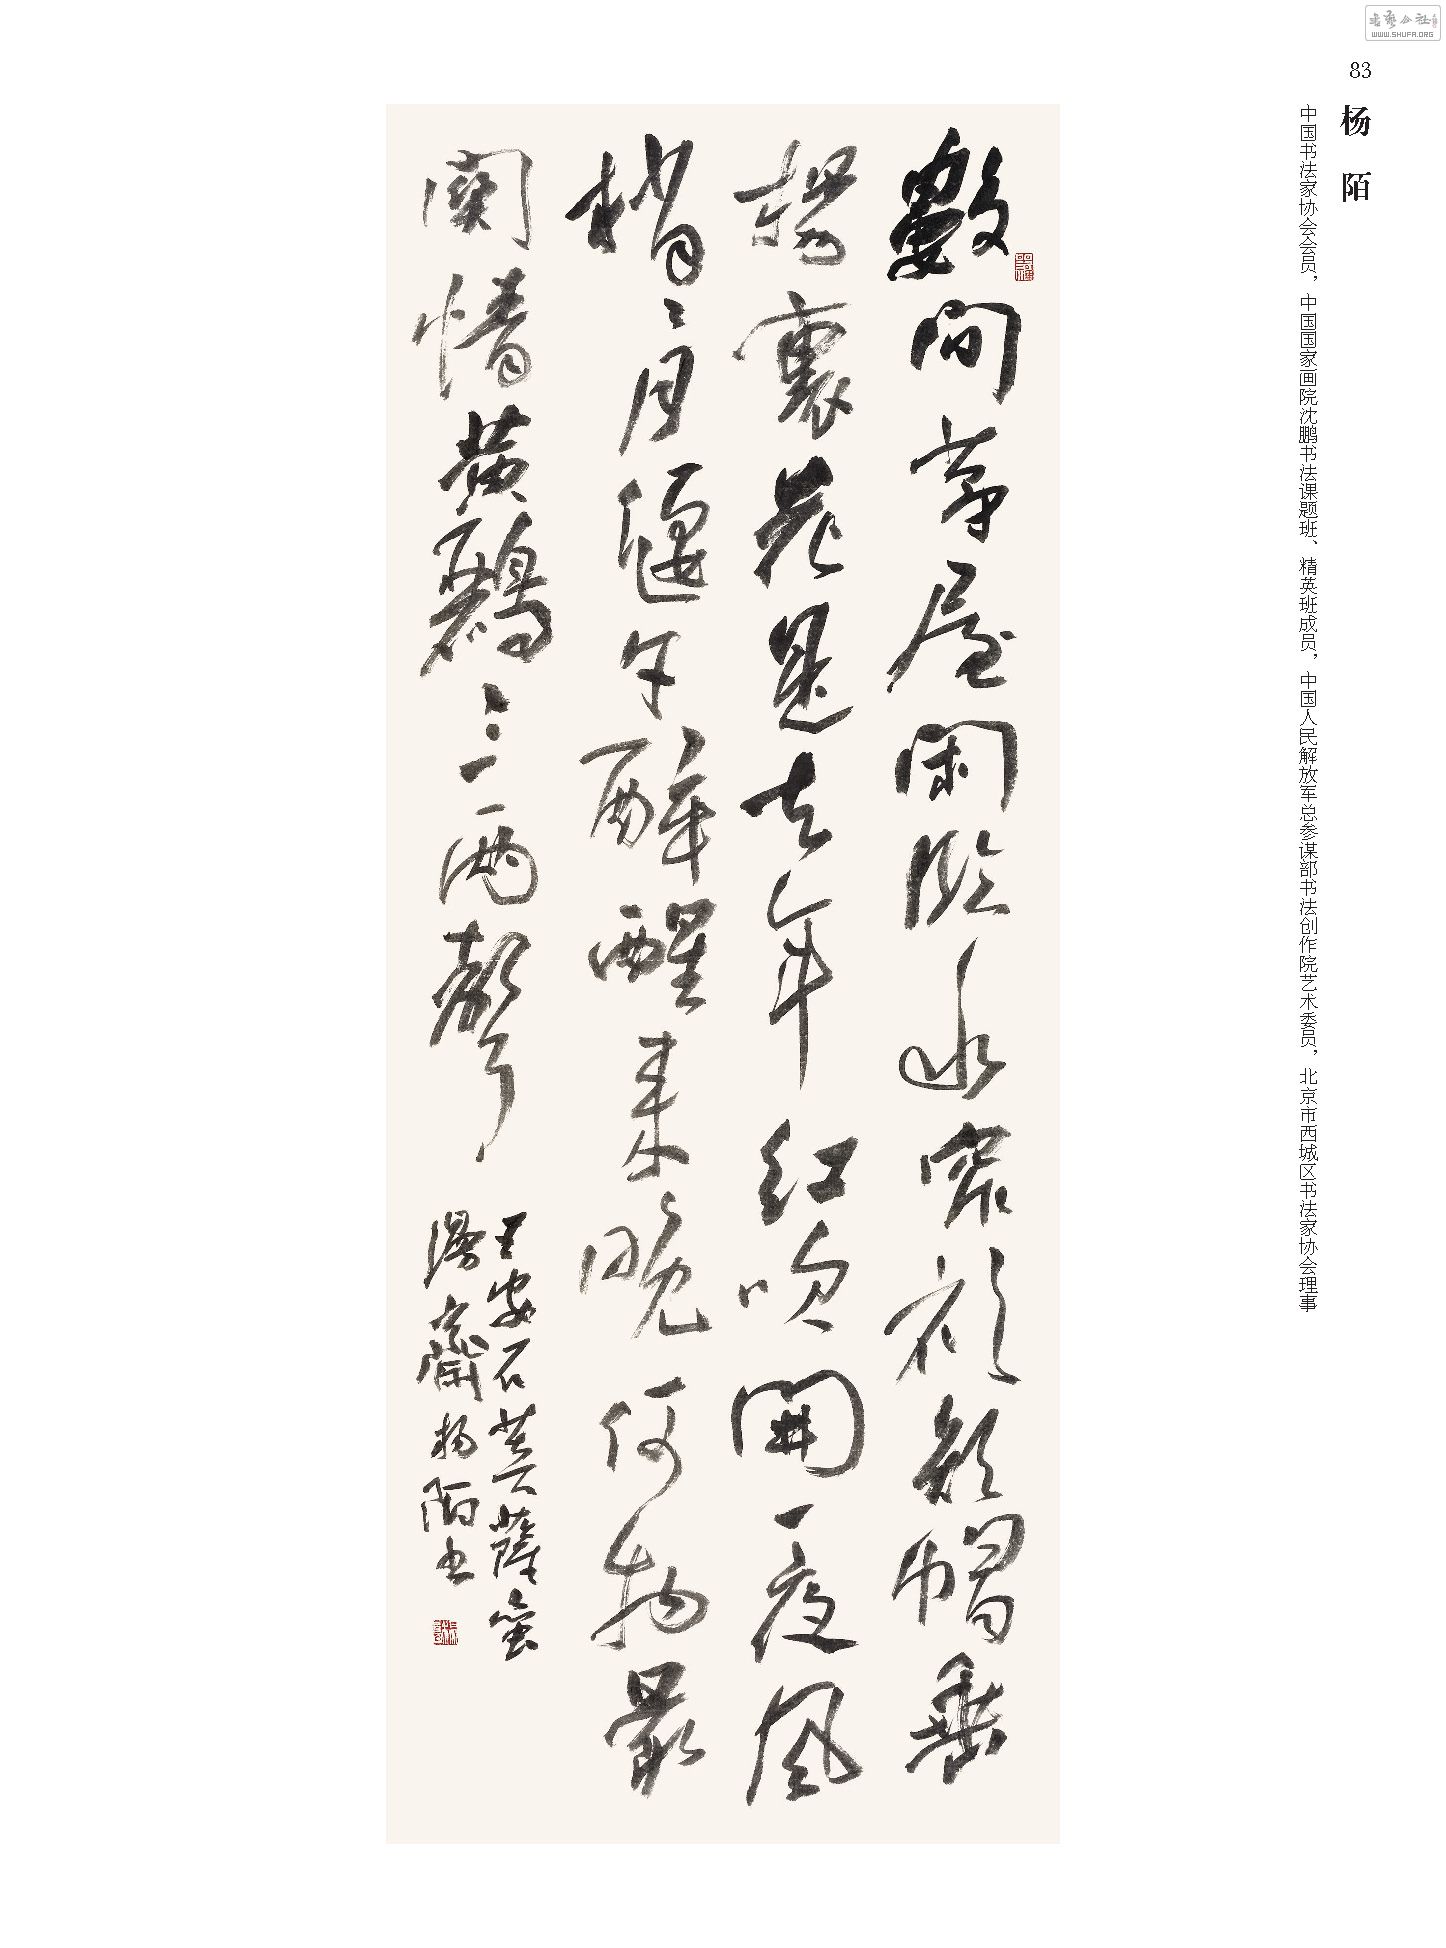 書藝公社
WWW.SHUFA.ORG
83
杨 陌
中国书法家协会会员，中国国家画院沈鹏书法课题班、精英班成员，中国人民解放军总参谋部书法创作院艺术委员，北京市西城区书法家协会理事
數間茅屋閑臨水窄衫短帽垂
楊裏花是去年紅吹開一夜風
梢〻月偃午醉醒來晚何物最
關情黃鸝三兩聲
王安石菩薩蠻
漫齋楊陌書